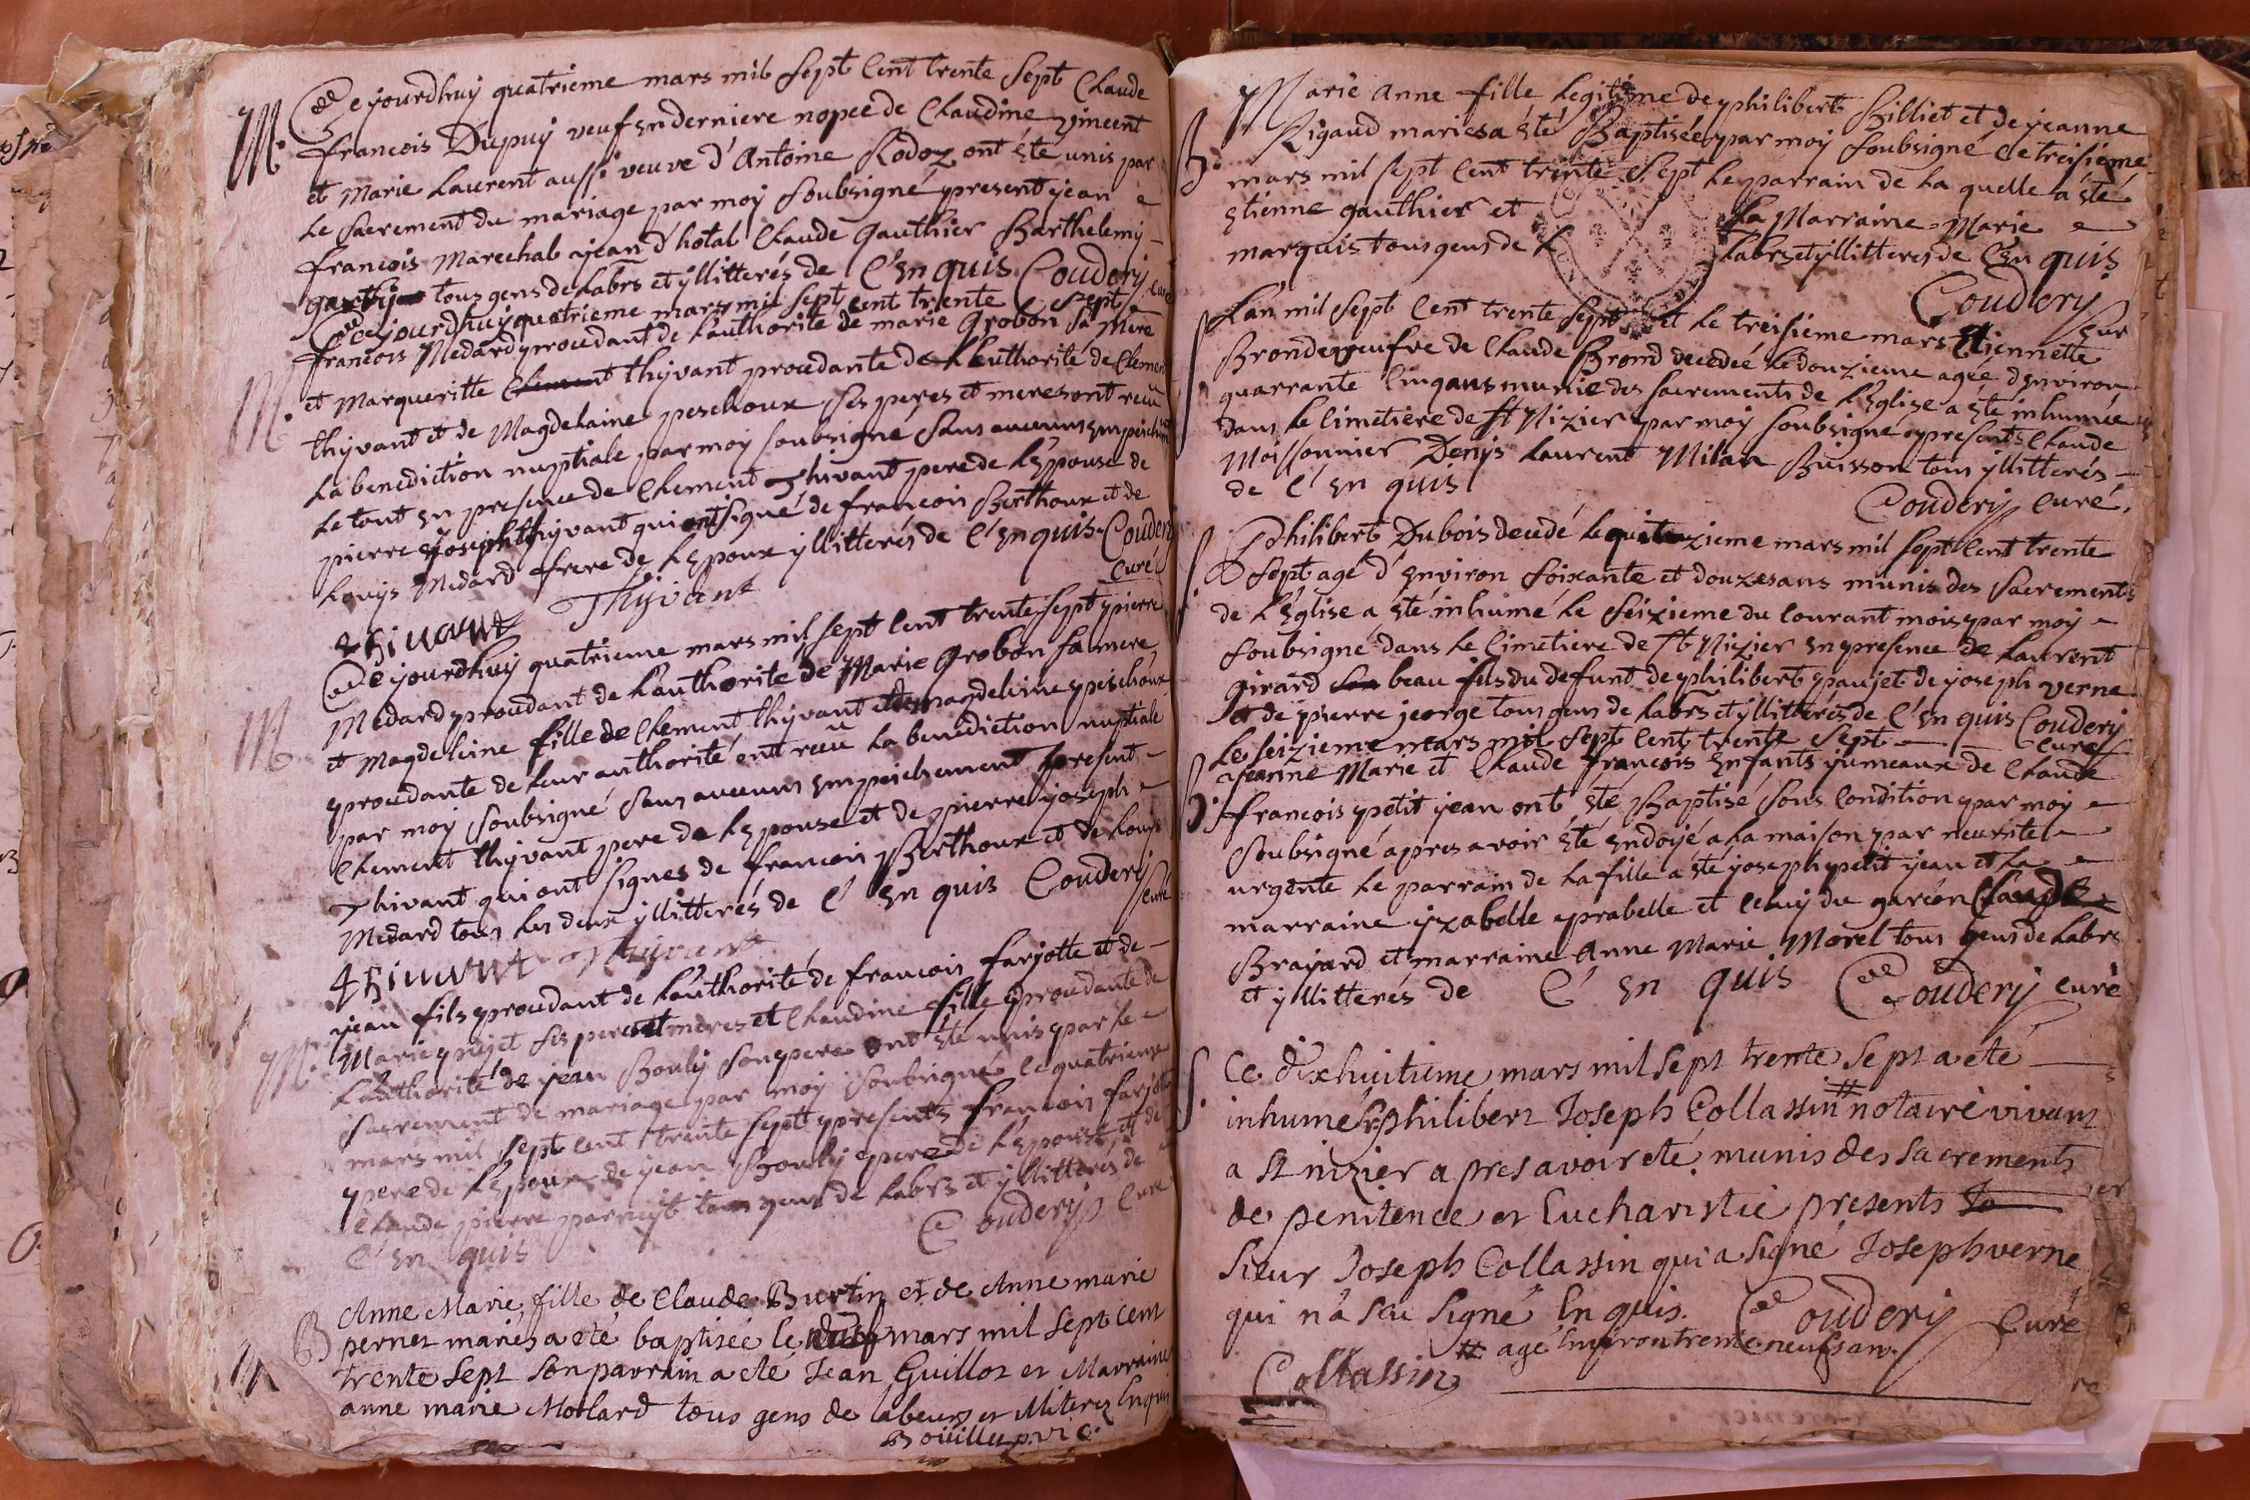 M. Ce yourdhuy quatrieme mars mil sept Cent trente sept Claude
francois Dupuy veuf en derniere nopce de Claudine vincent
et Marie Laurent aussi veuve d'Antoine Rodoz ont été unis par
Le sacrement du mariage par moy soubsigné present jean
francois Marechal jean d'hotal Claude Gauthier Barthelemy
tous gens de Labrs et yllitterés de C'enquis Coudery curé
Ce yourdhuy quatrieme mars mil sept Cent trente sept
M. francois Medard proudant de L'authorité de marie Grobon sa Mere
et Marqueritte thyvant procedante de L'authorité de Clement
thyvant et de Magdelaine peschoux ses peres et meres ont reçu
La benediction nuptiale par moy soubsigné sans aucuns empeichmt
Le tout en presence de Clement Thivant pere de L'epouse de
pierre joseph thyvant qui ont signé de francois Berthoux et de
Louys Medard frere de L'epoux yllitterés de C'enquis. Coudery
curé
thivant Thyvant
Ce yourdhuy quatrieme mars mil sept Cent trente sept pierre
M. Medard proudant de L'authorité de Marie Grobon sa mere
et Magdeleine fille de Clement thyvant et de magdeleine peschoux
procedante de leur authorité ont reçu La benediction nuptiale
par moy soubsigné sans aucuns empeichement present
Clement thyvant pere de L'epouse et de pierre joseph
Thivant qui ont signes de francois Berthoux et de Louys
Medard tous Les deux yllitterés de C'enquis Coudery
curé
thivant Thyvant
jean fils proudant de L'authorité de francois farjotte et de
M. Marie pujet ses peres et meres et Claudine fille proudante de
L'authorité de jean Bouly son pere ont été unis par Le
sacrement de mariage par moy soubsigné Ce quatrieme
mars mil sept Cent trente sept presents francois farjotte
pere de L'epoux de jean Bouly pere de L'epouse et de
Claude pierre tous gens de Labrs et yllitterés de
C'enquis Coudery Curé
B Anne Marie fille de Claude Burtin et de Anne marie
pernet mariés a eté baptisée le mars mil sept cent
trente sept son parrain a eté Jean Guillot et Marraine
anne marie Mollard tous gens de labeurs et illiterez Enquis
Boüillu p. vic.
Marie Anne fille Legitime de philibert Billiet et de jeanne
B. Rigaud maries a été Baptisée par moy soubsigné Ce treisieme
mars mil sept Cent trente sept Le parrain de La quelle a été
etienne gauthier et La Marraine Marie
marquis tous gens de Labrs et yllitterés de C'enquis
Coudery
Curé
S L'an mil sept Cent trente sept et Le treisieme mars Etiennette
Brondez veufve de Claude Brond decedée Le douzieme agée d'environ
quarrante Cinq ans munie des sacrements de L'Eglise a été inhumée
dans Le Cimetiere de St Nizier par moy soubsigné presents Claude
Moissonnier Denys Laurent Milan Buisson tous yllitterés
de C'enquis
Coudery Curé.
S. Philibert Dubois decedé Le mars mil sept Cent trente
sept agé d'environ soixante et douze ans munis des sacrements
de L'Eglise a été inhumé Le seizieme du Courant mois par moy
soubsigné dans Le Cimetiere de St Nizier en presence de Laurent
Girard beau fils du defunt de philibert paujet de joseph verne
et de pierre jeorge tous gens de Labrs et yllitterés de C'enquis Coudery
Curé
Le seizieme mars mil sept Cent trente sept
jeanne Marie et Claude francois enfants yumeaux de Claude
B. francois petit jean ont été Baptisé sous Condition par moy
soubsigné apres avoir été endoyé a La maison par necessite
urgente Le parrain de La fille a été joseph petit jean et La
marraine yzabelle prabelle et Celuy du garcon Claude
Brayard et marraine Anne Marie Morel tous gens de Labrs
et yllitterés de C'enquis Coudery curé
S. Ce dixhuitieme mars mil sept trente sept a eté
inhumé Sr philibert Joseph Collassin # notaire vivant
a St nizier apres avoir eté munis des sacrements
de penitence et Eucharistie presents Jo
Sieur Joseph Collassin qui a signé Joseph verne
qui n'a sçu signé Enquis. Coudery Curé
# agé Environ trente neuf ans.
Collassin